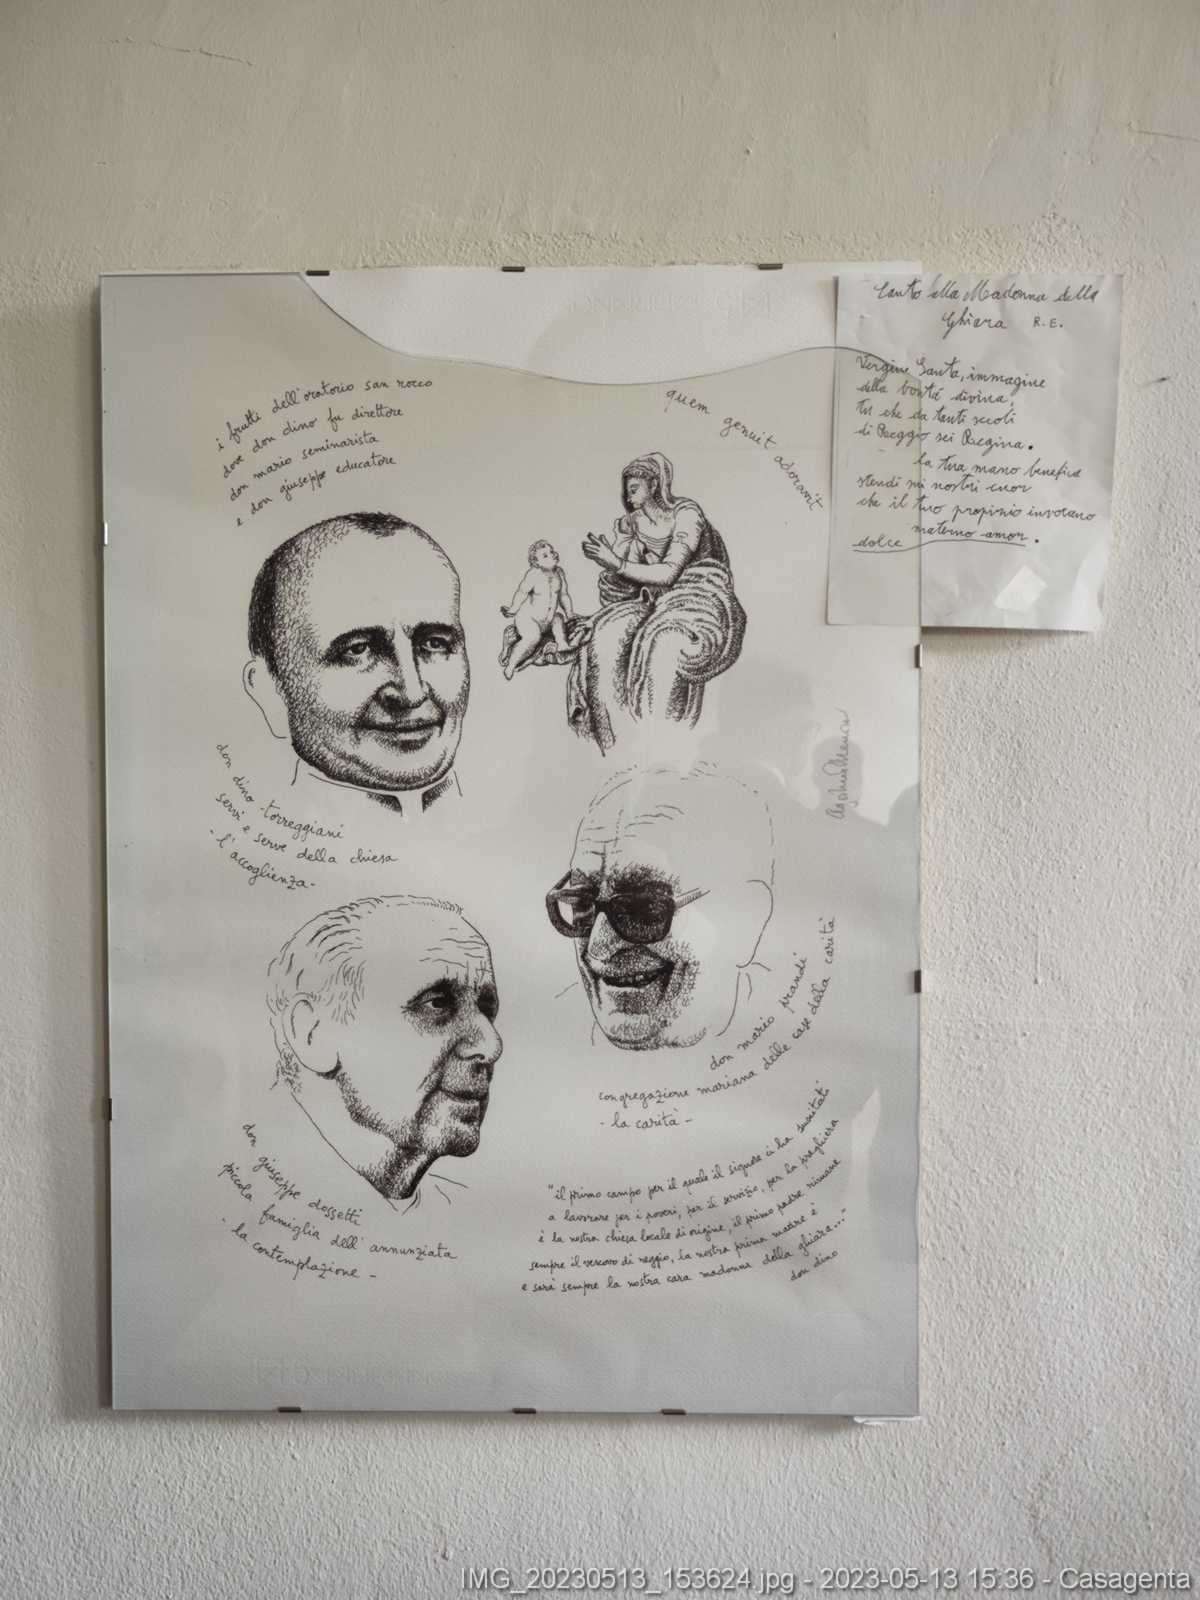 i frutti dell'oratorio san rocco
dove don dino fu direttore
don mario seminarista
e don giuseppe educatore
quem genuit adoravit
Canto alla Madonna della
Ghiara R.E.
Vergine Santa, immagine
della bontà divina,
tu che da tanti secoli
di Reggio sei Regina.
la tua mano benefica
stendi sui nostri cuor
che il tuo propizio invocano
dolce materno amor.
don dino torreggiani
servi e serve della chiesa
- l'accoglienza -
don mario prandi
congregazione mariana delle case della carità
- la carità -
don giuseppe dossetti
piccola famiglia dell'annunziata
- la contemplazione -
"il primo campo per il quale il signore ci ha suscitati
a lavorare per i poveri, per il servizio, per la preghiera
è la nostra chiesa locale di origine, il primo padre rimane
sempre il vescovo di reggio, la nostra prima madre è
e sarà sempre la nostra cara madonna della ghiara..."
don dino
IMG_20230513_153624.jpg - 2023-05-13 15:36 - Casagenta